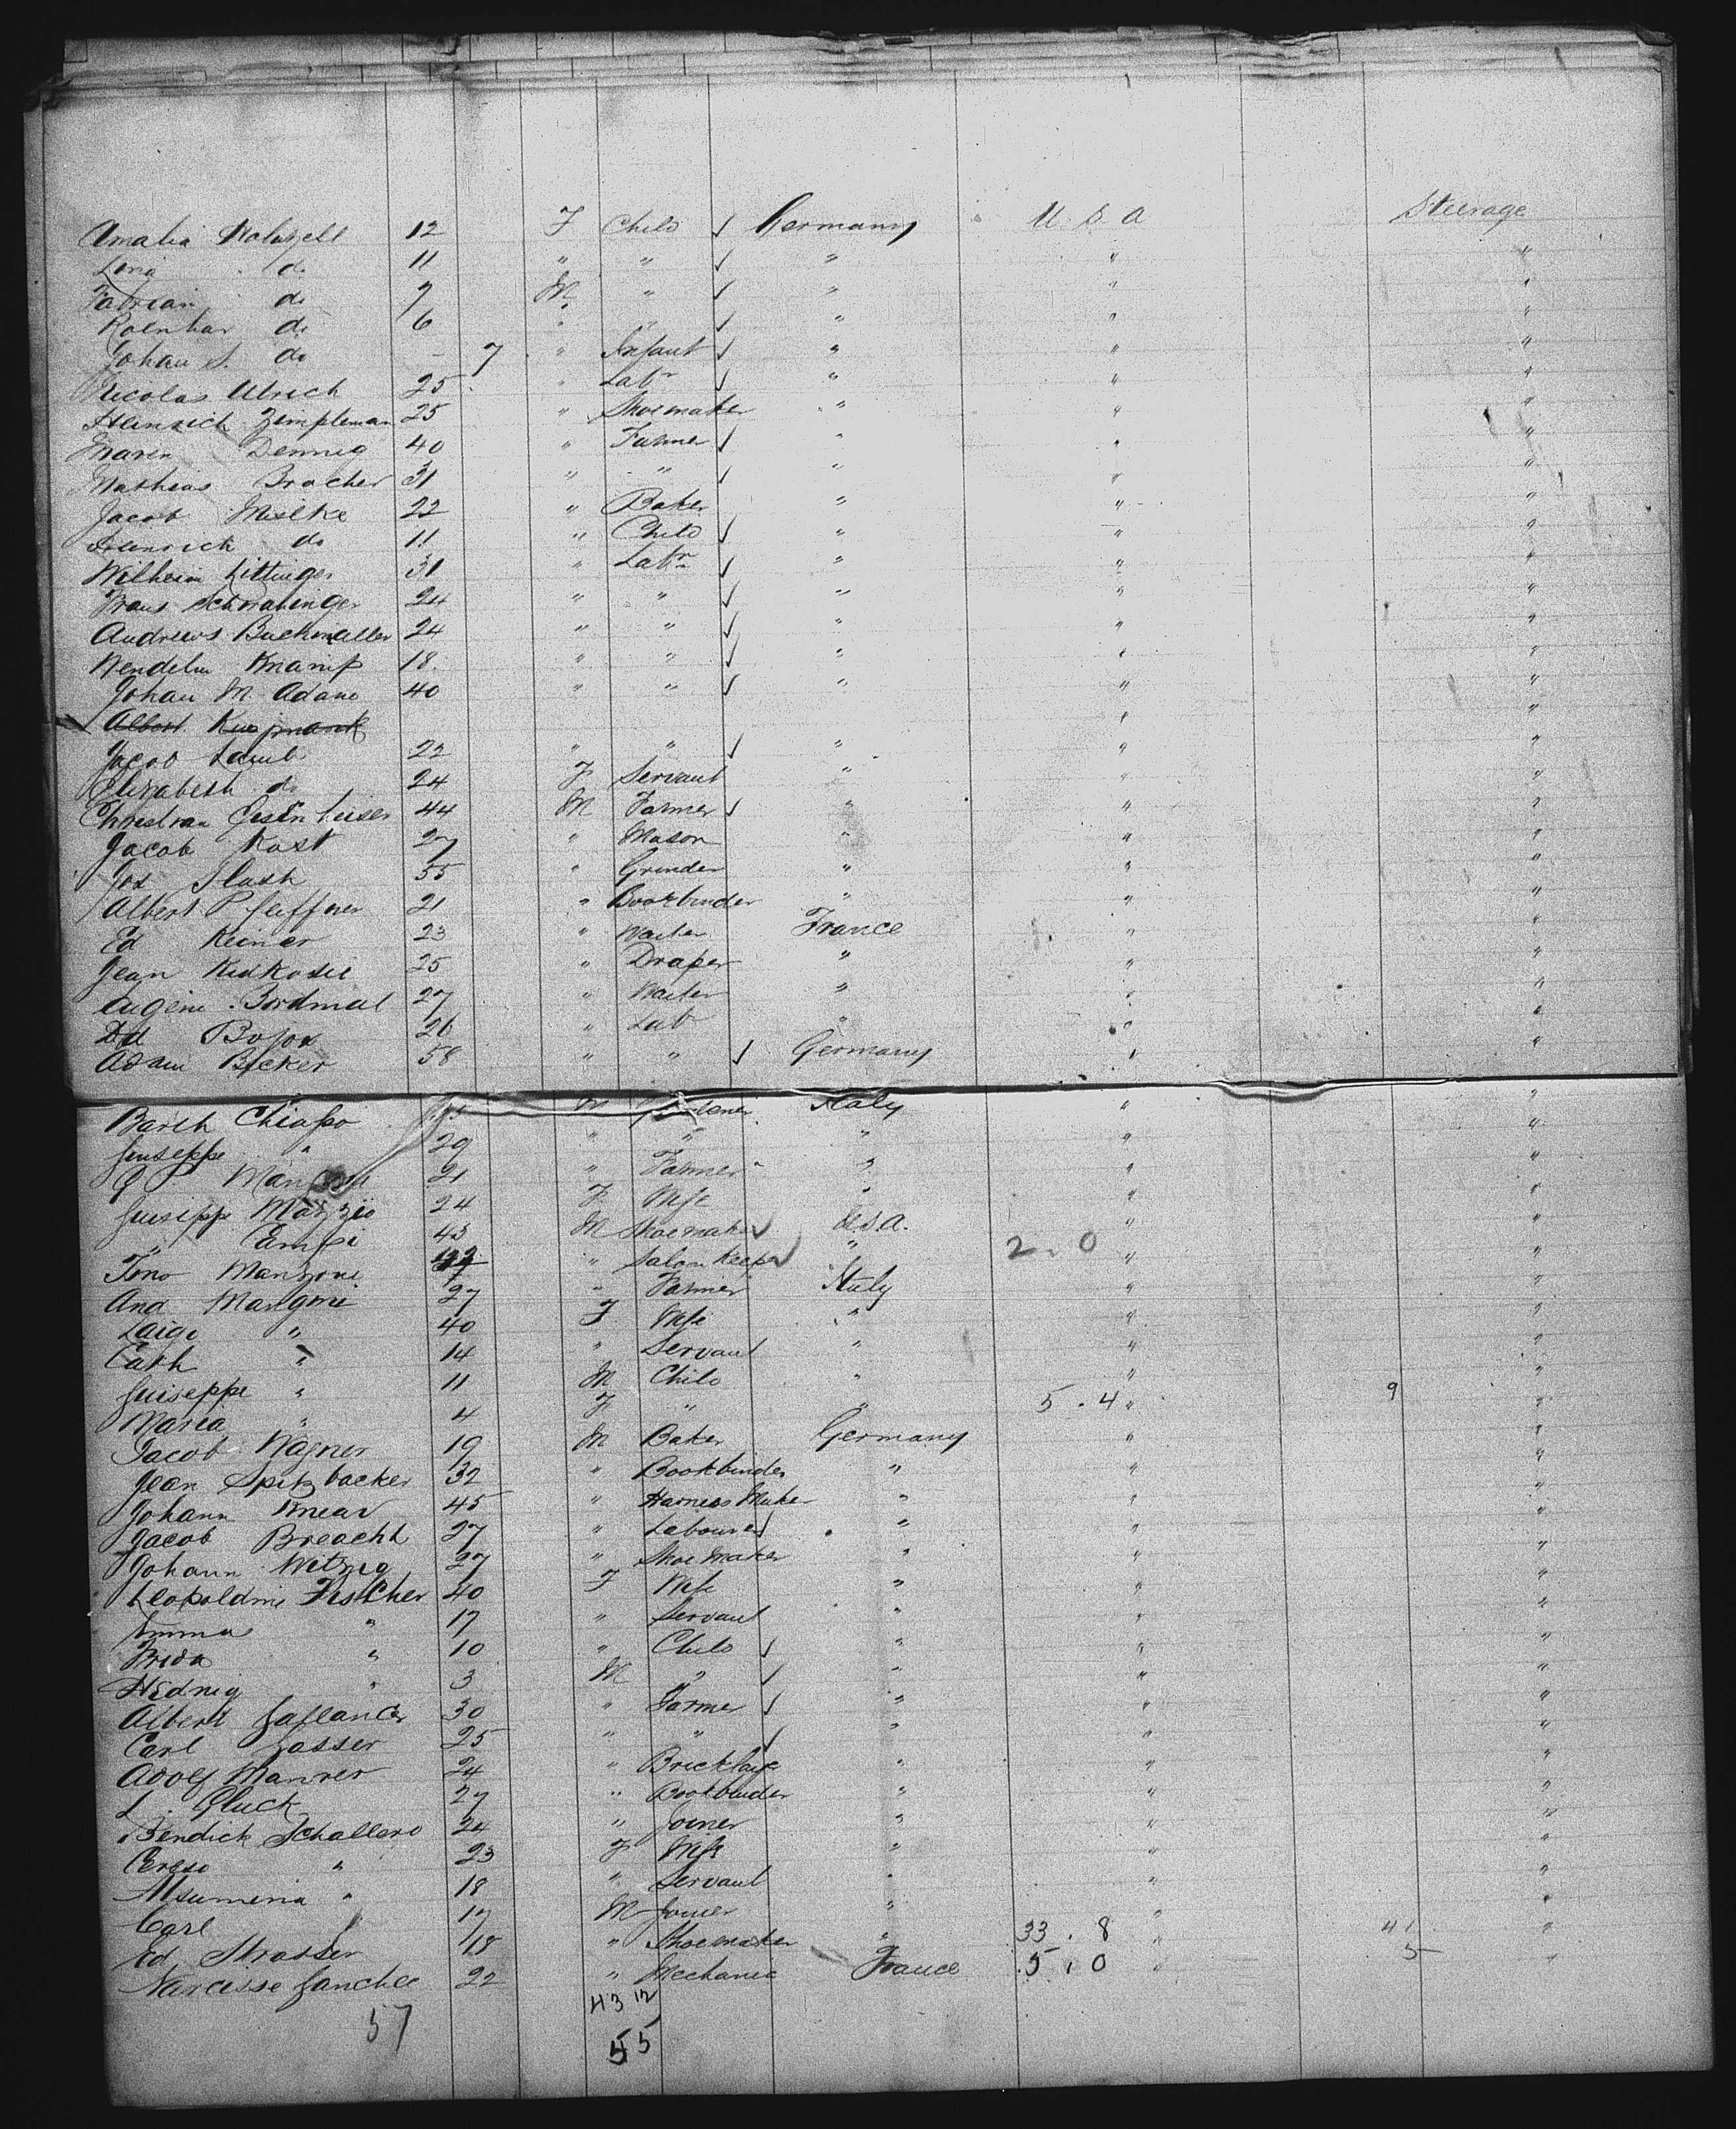 Amalia 12 F Child ✓ Germany U.S.A Steerage
Lena do 11 " " ✓ " " "
Fabrian do 7 M " ✓ " " "
do 6 " " ✓ " " "
Johan S. do - 7 " Infant ✓ " " "
Nicolas Ulrich 25 " Labr ✓ " " "
Heinrich Zempleman 25 " Shoemaker " " "
Dennig 40 " Farmer ✓ " " "
Mathias Brocher 31 " " ✓ " " "
Jacob Mielke 22 " Baker " " "
Heinrich do 11 " Child ✓ " " "
Wilhelm Littinger 31 " Labr ✓ " " "
Franz 24 " " ✓ " " "
Andrews 24 " " ✓ " " "
Wendelin Knamp 18 " " ✓ " " "
Johan M. Adams 40 " " ✓ " " "
Albert " "
Jacob Laub 22 " " ✓ " " "
Elizabeth do 24 F Servant " " "
Christian 44 M Farmer ✓ " " "
Jacob Kast 27 " Mason " " "
Jos 55 " Grinder " " "
Albert Pfeiffner 21 " Bookbinder " " "
Ed Keiner 23 " Waiter France " "
Jean 25 " Draper " " "
Eugene 27 " Waiter " " "
Ed 26 " Labr " " "
Adam Becker 58 " " ✓ Germany " "
Barth Chiapo M Italy " "
Guseppe " 29 " " " " "
G P 21 " Farmer " " "
Guisepp 24 F Wife " " "
" Campi 43 M Shoemaker ✓ U.S.A. " "
Tono Manzoni " Saloon Keeper ✓ " 2.0 " "
And Mangoni 27 " Farmer Italy " "
Laigi " 40 F Wife " " "
Cath " 14 " Servant " " "
Guiseppe " 11 M Child " " "
Maria " 4 F " " 5.4 " 9 "
Jacob Wagner 19 M Baker Germany " "
Jean Spitzbacker 32 " Bookbinder " " "
Johann Knear 45 " Harness Maker " " "
Jacob Breacht 27 " Labourer ✓ " " "
Johann Witzig 27 " Shoe Maker " " "
Leopoldine Fischer 40 F Wife " " "
Emma " 17 " Servant " " "
Frida " 10 " Child ✓ " " "
Hednig " 3 M " ✓ " " "
Albert 30 " Farmer ✓ " " "
Carl Zasser 25 " " ✓ " " "
Adolf Manrer 24 " Bricklayer " " "
L. Gluck 27 " Bookbinder " " "
Bendick Schallero 24 " Joiner " " "
" 23 F Wife " " "
" 18 " Servant " " "
Carl " 17 M Joiner " " "
Ed Strasser 18 " Shoemaker " 33.8 " 41 "
Narcisse 22 " Mechanic France 5.0 " 5 "
43 12
57 55